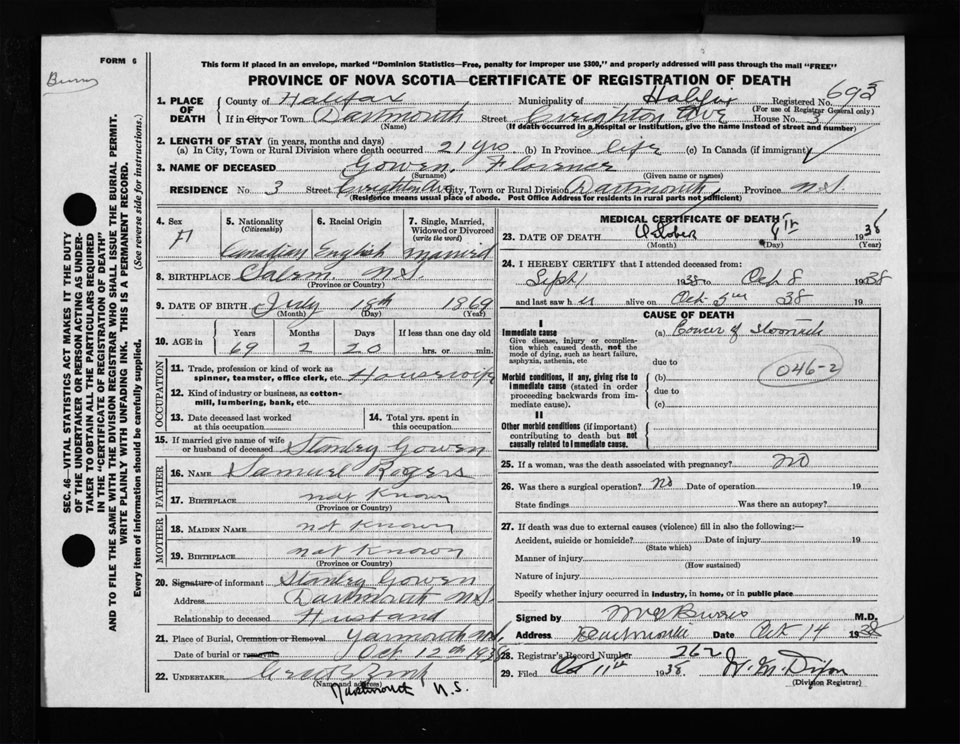 FORM 6
This form if placed in an envelope, marked "Dominion Statistics—Free, penalty for improper use $300," and properly addressed will pass through the mail "FREE"
PROVINCE OF NOVA SCOTIA—CERTIFICATE OF REGISTRATION OF DEATH
1. PLACE OF DEATH
County of Halifax Municipality of Halifax Registered No. 693
(For use of Registrar General only)
If in City or Town Dartmouth Street Creighton Ave House No. 3
(Name) (If death occurred in a hospital or institution, give the name instead of street and number)
2. LENGTH OF STAY (in years, months and days)
(a) In City, Town or Rural Division where death occurred 21 yrs (b) In Province life (c) In Canada (if immigrant)
3. NAME OF DECEASED Gowen, Florence
(Surname) (Given name or names)
RESIDENCE No. 3 Street Creighton Ave City, Town or Rural Division Dartmouth Province N.S.
(Residence means usual place of abode. Post Office Address for residents in rural parts not sufficient)
4. Sex F
5. Nationality (Citizenship) Canadian
6. Racial Origin English
7. Single, Married, Widowed or Divorced (write the word) Married
8. BIRTHPLACE Salem N.S.
(Province or Country)
9. DATE OF BIRTH July 18th 1869
(Month) (Day) (Year)
10. AGE in Years Months Days If less than one day old
69 2 20 hrs. or min.
OCCUPATION
11. Trade, profession or kind of work as spinner, teamster, office clerk, etc. Housewife
12. Kind of industry or business, as cotton-mill, lumbering, bank, etc.
13. Date deceased last worked at this occupation
14. Total yrs. spent in this occupation
15. If married give name of wife or husband of deceased Stanley Gowen
FATHER
16. NAME Samuel Rogers
17. BIRTHPLACE not known
(Province or Country)
MOTHER
18. MAIDEN NAME not known
19. BIRTHPLACE not known
(Province or Country)
20. Signature of informant Stanley Gowen
Address Dartmouth N.S.
Relationship to deceased Husband
21. Place of Burial, Cremation or Removal Yarmouth N.S.
Date of burial or removals Oct 12th 1938
22. UNDERTAKER
(Name and address)
Dartmouth N.S.
MEDICAL CERTIFICATE OF DEATH
23. DATE OF DEATH October 1938
(Month) (Day) (Year)
24. I HEREBY CERTIFY that I attended deceased from:
Sept 1 1938 to Oct 8 1938
and last saw her alive on Oct 38 19
CAUSE OF DEATH
I
Immediate cause
Give disease, injury or complication which caused death, not the mode of dying, such as heart failure, asphyxia, asthenia, etc
(a) Cancer of
due to
Morbid conditions, if any, giving rise to immediate cause (stated in order proceeding backwards from immediate cause).
(b)
046-2
due to
(c)
II
Other morbid conditions (if important) contributing to death but not causally related to immediate cause.
25. If a woman, was the death associated with pregnancy? NO
26. Was there a surgical operation? No Date of operation 19
State findings Was there an autopsy?
27. If death was due to external causes (violence) fill in also the following:—
Accident, suicide or homicide? Date of injury 19
(State which)
Manner of injury
(How sustained)
Nature of injury
Specify whether injury occurred in industry, in home, or in public place
Signed by M.D.
Address Dartmouth Date Oct 14 1938
28. Registrar's Record Number 262
29. Filed Oct 11th 1938
(Division Registrar)
SEC. 46—VITAL STATISTICS ACT MAKES IT THE DUTY
OF THE UNDERTAKER OR PERSON ACTING AS UNDERTAKER
TO OBTAIN ALL THE PARTICULARS REQUIRED
IN THE "CERTIFICATE OF REGISTRATION OF DEATH"
AND TO FILE THE SAME WITH THE DIVISION REGISTRAR WHO SHALL ISSUE THE BURIAL PERMIT.
WRITE PLAINLY WITH UNFADING INK. THIS IS A PERMANENT RECORD.
Every item of information should be carefully supplied. (See reverse side for instructions.)